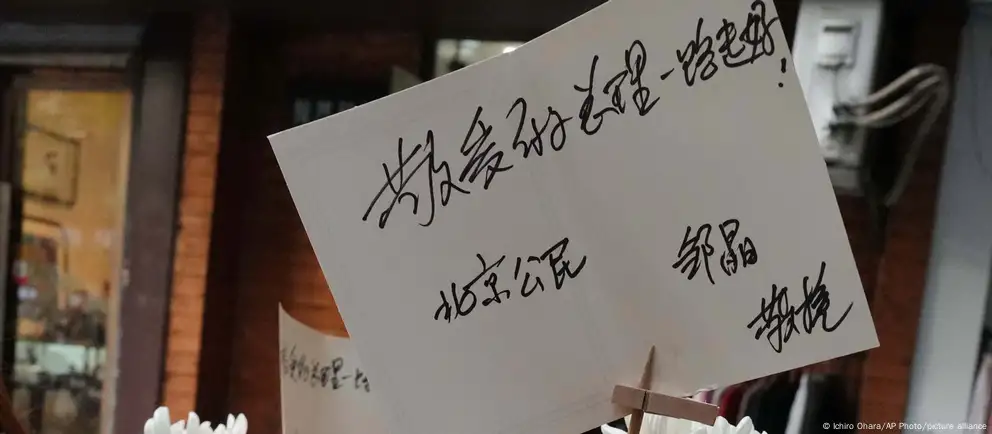 敬爱的总理一路走好!
北京公民 邹晶
敬挽
爱的总理一
© Ichiro Ohara/AP Photo/picture alliance